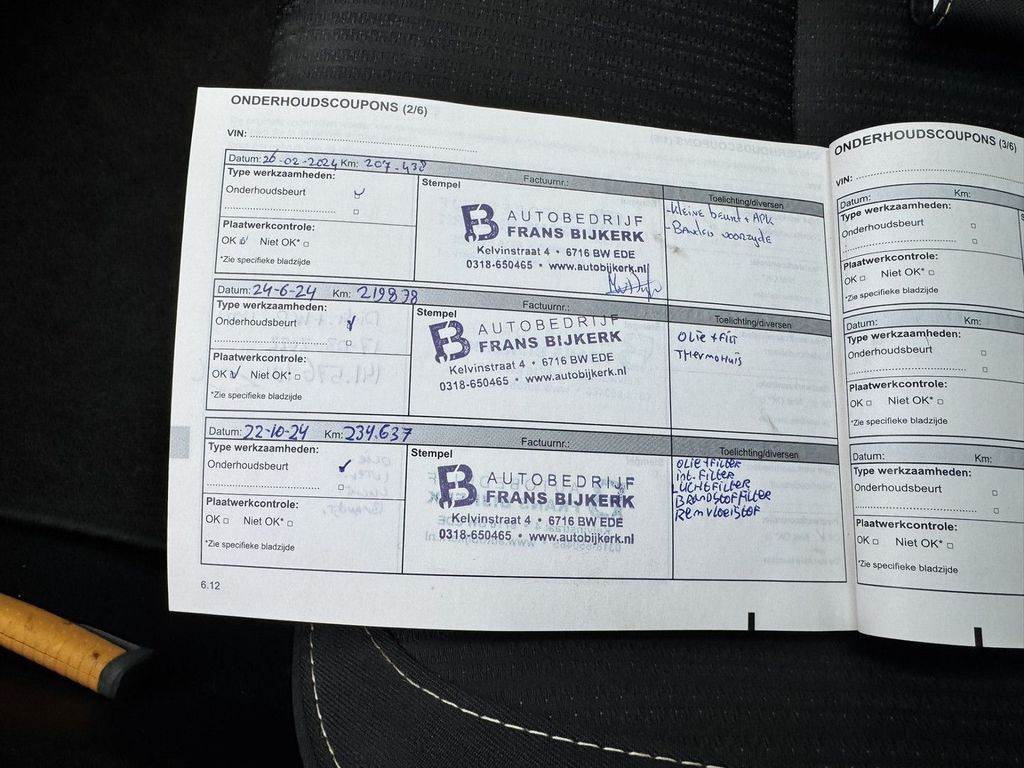 ONDERHOUDSCOUPONS (2/6)
VIN:
Datum: 26-02-2024 Km: 207.438
Factuurnr.:
Type werkzaamheden:
Onderhoudsbeurt
Plaatwerkcontrole:
OK Niet OK*
*Zie specifieke bladzijde
Stempel
FB AUTOBEDRIJF
FRANS BIJKERK
Kelvinstraat 4 • 6716 BW EDE
0318-650465 • www.autobijkerk.nl
Toelichting/diversen
- Kleine beurt + APK
- Banden voorzyde
Datum: 24-6-24 Km: 219878
Factuurnr.:
Type werkzaamheden:
Onderhoudsbeurt
Plaatwerkcontrole:
OK Niet OK*
*Zie specifieke bladzijde
Stempel
FB AUTOBEDRIJF
FRANS BIJKERK
Kelvinstraat 4 • 6716 BW EDE
0318-650465 • www.autobijkerk.nl
Toelichting/diversen
Olie + Filt
Thermohuis
Datum: 22-10-24 Km: 234.637
Factuurnr.:
Type werkzaamheden:
Onderhoudsbeurt
Plaatwerkcontrole:
OK Niet OK*
*Zie specifieke bladzijde
Stempel
FB AUTOBEDRIJF
FRANS BIJKERK
Kelvinstraat 4 • 6716 BW EDE
0318-650465 • www.autobijkerk.nl
Toelichting/diversen
Olie + Filter
Int. Filter
Luchtfilter
Brandstoffilter
Remvloeistof
6.12
ONDERHOUDSCOUPONS (3/6)
VIN:
Datum: Km:
Type werkzaamheden:
Onderhoudsbeurt
Plaatwerkcontrole:
OK Niet OK*
*Zie specifieke bladzijde
Datum: Km:
Type werkzaamheden:
Onderhoudsbeurt
Plaatwerkcontrole:
OK Niet OK*
*Zie specifieke bladzijde
Datum: Km:
Type werkzaamheden:
Onderhoudsbeurt
Plaatwerkcontrole:
OK Niet OK*
*Zie specifieke bladzijde